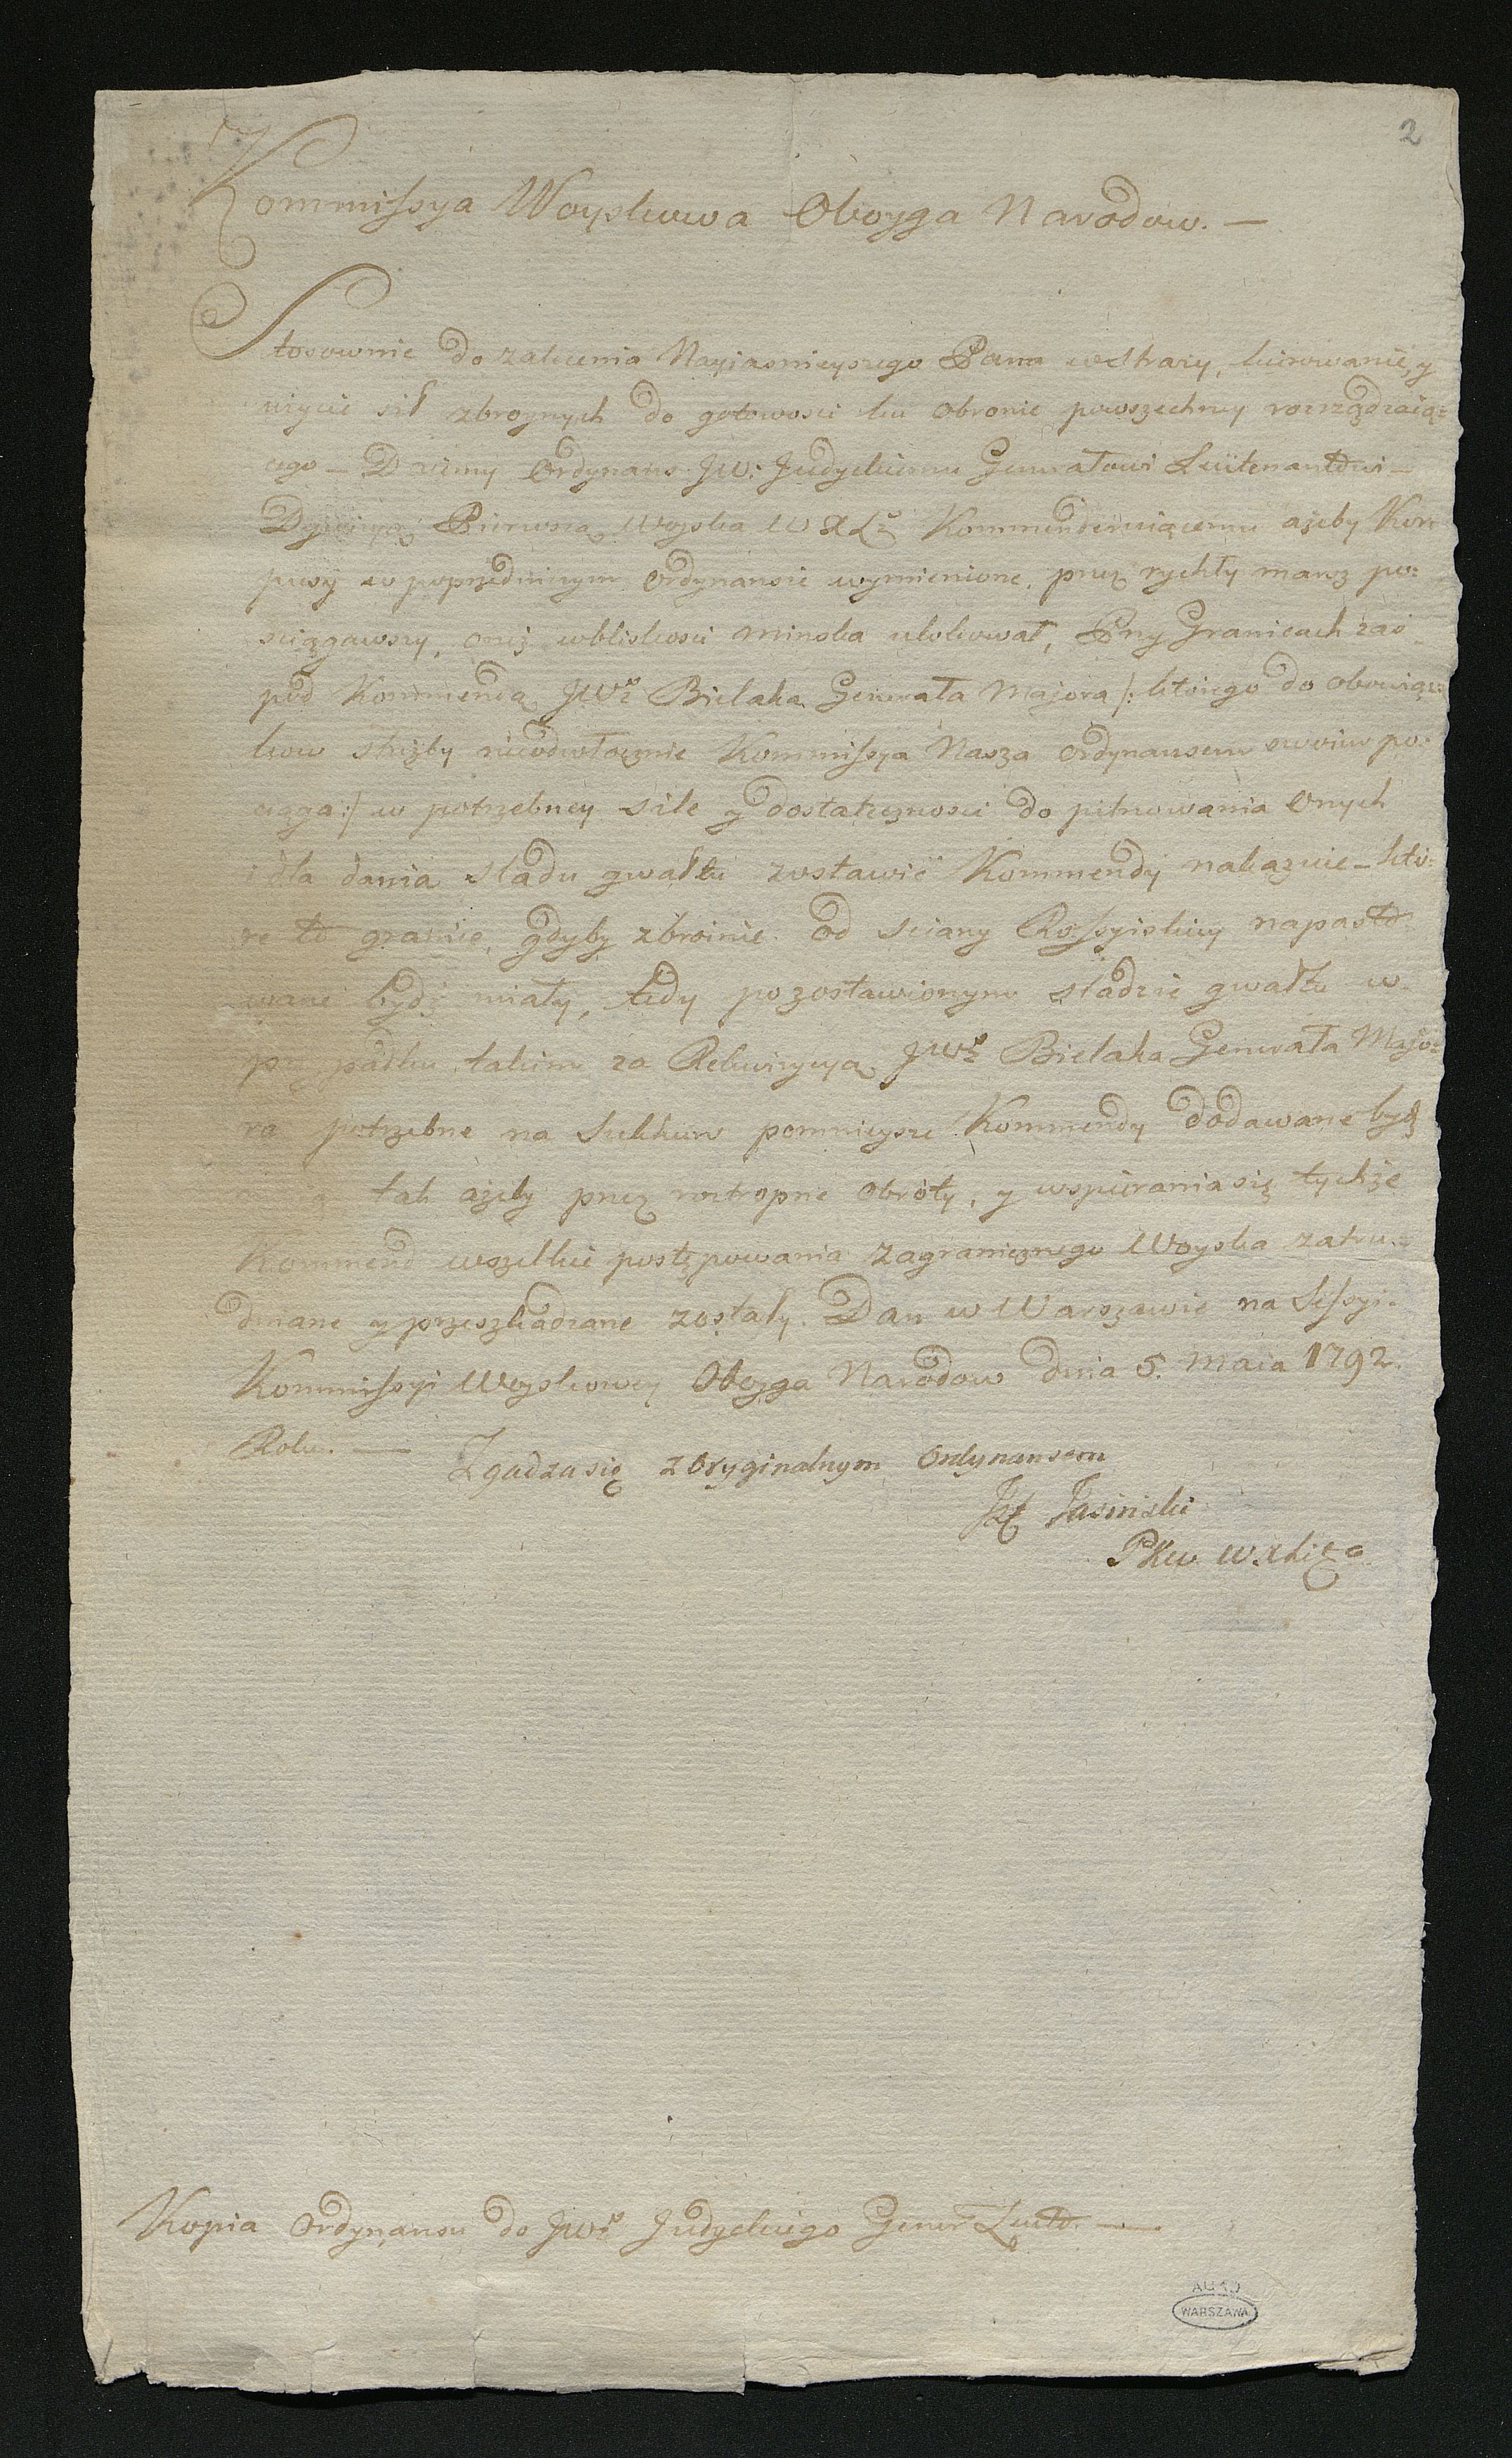 2
Kommissya Woyskowa Oboyga Narodow. —
Stosownie do zalecenia Nayiasnieyszego Pana w Straży, kierowanie, y
użycie sił zbroynych do gotowosci ku obronie powszechney rozrządzaią=
cego — Daiemy Ordynans JW: Judyckiemu Generałowi Leütenantowi —
Dywizyą Pierwszą Woyska W X Lz Kommenderuiącemu ażeby Kor=
pusy w poprzedniczym Ordynansie wymienione, przez rychły marsz po=
sciągawszy, oneż w bliskosci Minska ulokował, Przy Granicach zaś
pod Kommendą JWo Bielaka Generała Majora /: ktorego do obowiąz=
kow służby nieodwłocznie Kommissya Nasza Ordynansem swoim po=
ciąga :/ w potrzebney sile y dostateczności do pilnowania onych
i dla dania sladu gwałtu zostawić Kommendy nakazuie — kto=
re to granice, gdyby zbroinie od sciany Rossyiskiey napasto=
wane bydź miały, tedy po zostawionym sladzie gwałtu w
przypadku takim za Rekwizycyą JWo Bielaka Generała Majo=
ra potrzebne na Sukkurs pomnieysze Kommendy dodawane bydź
tak ażeby przez roztropne obroty, y wspierania się tychże
Kommend wszelkie postępowania zagranicznego Woyska zatru=
dniane y przeszkadzane zostały. Dan w Warszawie na Sessyi
Kommissyi Woyskowey Oboyga Narodow dnia 5. Maia 1792.
Roku. —
Zgadza się z Oryginalnym Ordynansem
Jasinski
Kopia Ordynansu do JWo Judyckiego Gener Leut. —
AGAD
WARSZAWA